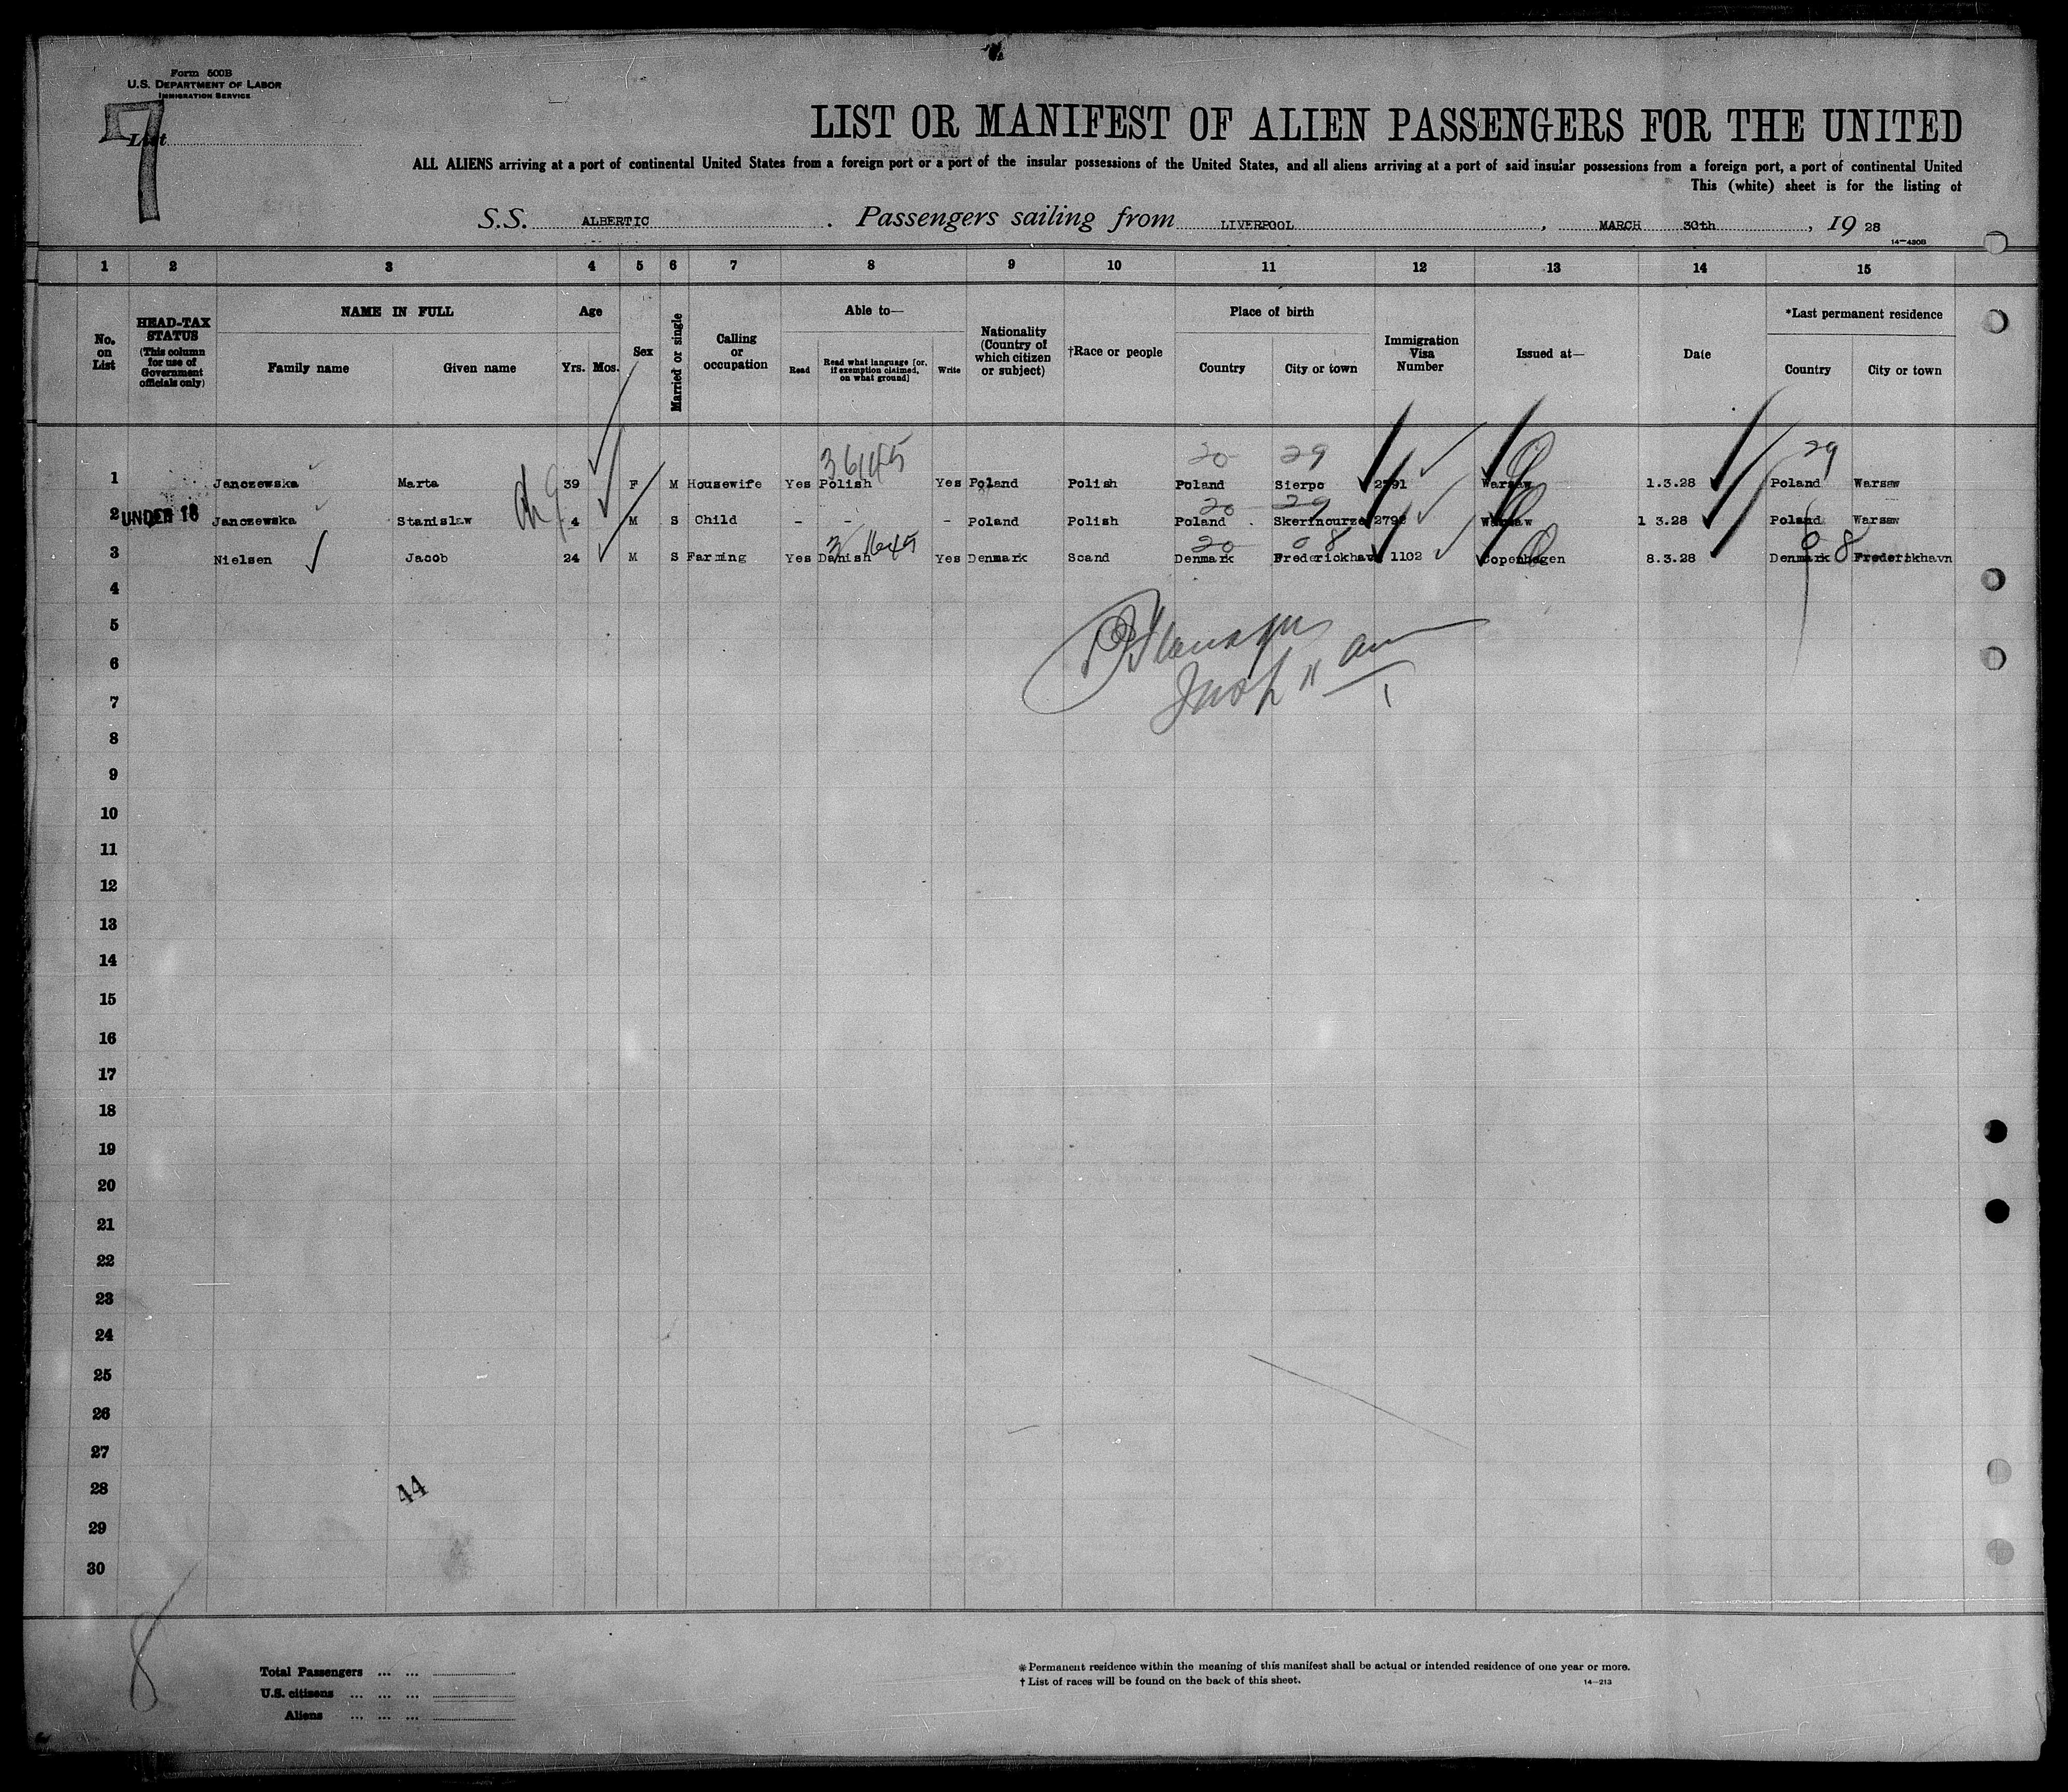 Form 500B
U.S. DEPARTMENT OF LABOR
IMMIGRATION SERVICE
7
List
LIST OR MANIFEST OF ALIEN PASSENGERS FOR THE UNITED
ALL ALIENS arriving at a port of continental United States from a foreign port or a port of the insular possessions of the United States, and all aliens arriving at a port of said insular possessions from a foreign port, a port of continental United
This (white) sheet is for the listing of
S.S. ALBERTIC . Passengers sailing from LIVERPOOL , MARCH 30th , 19 28
14-4208
1 2 3 4 5 6 7 8 9 10 11 12 13 14 15
No. on List
HEAD-TAX STATUS (This column for use of Government officials only)
NAME IN FULL
Family name Given name
Age
Yrs. Mos.
Sex
Married or single
Calling or occupation
Able to—
Read
Read what language [or, if exemption claimed, on what ground]
Write
Nationality (Country of which citizen or subject)
†Race or people
Place of birth
Country City or town
Immigration Visa Number
Issued at—
Date
*Last permanent residence
Country City or town
20 29 29
1 Janczewska Marta 39 F M Housewife Yes Polish Yes Poland Polish Poland Sierpc 2791 Warsaw 1.3.28 Poland Warsaw
20 29
2 UNDER 16 Janczewska Stanislaw 4 M S Child - - - Poland Polish Poland Warsaw 1 3.28 Poland Warsaw
20 08 08
3 Nielsen Jacob 24 M S Farming Yes Danish Yes Denmark Scand Denmark Frederickhavn 1102 Copenhagen 8.3.28 Denmark Frederikhavn
4
5
6
7
8
9
10
11
12
13
14
15
16
17
18
19
20
21
22
23
24
25
26
27
28 44
29
30
8
Total Passengers ... ...
U.S. citizens ... ... ...
Aliens ... ... ...
* Permanent residence within the meaning of this manifest shall be actual or intended residence of one year or more.
† List of races will be found on the back of this sheet. 14-213